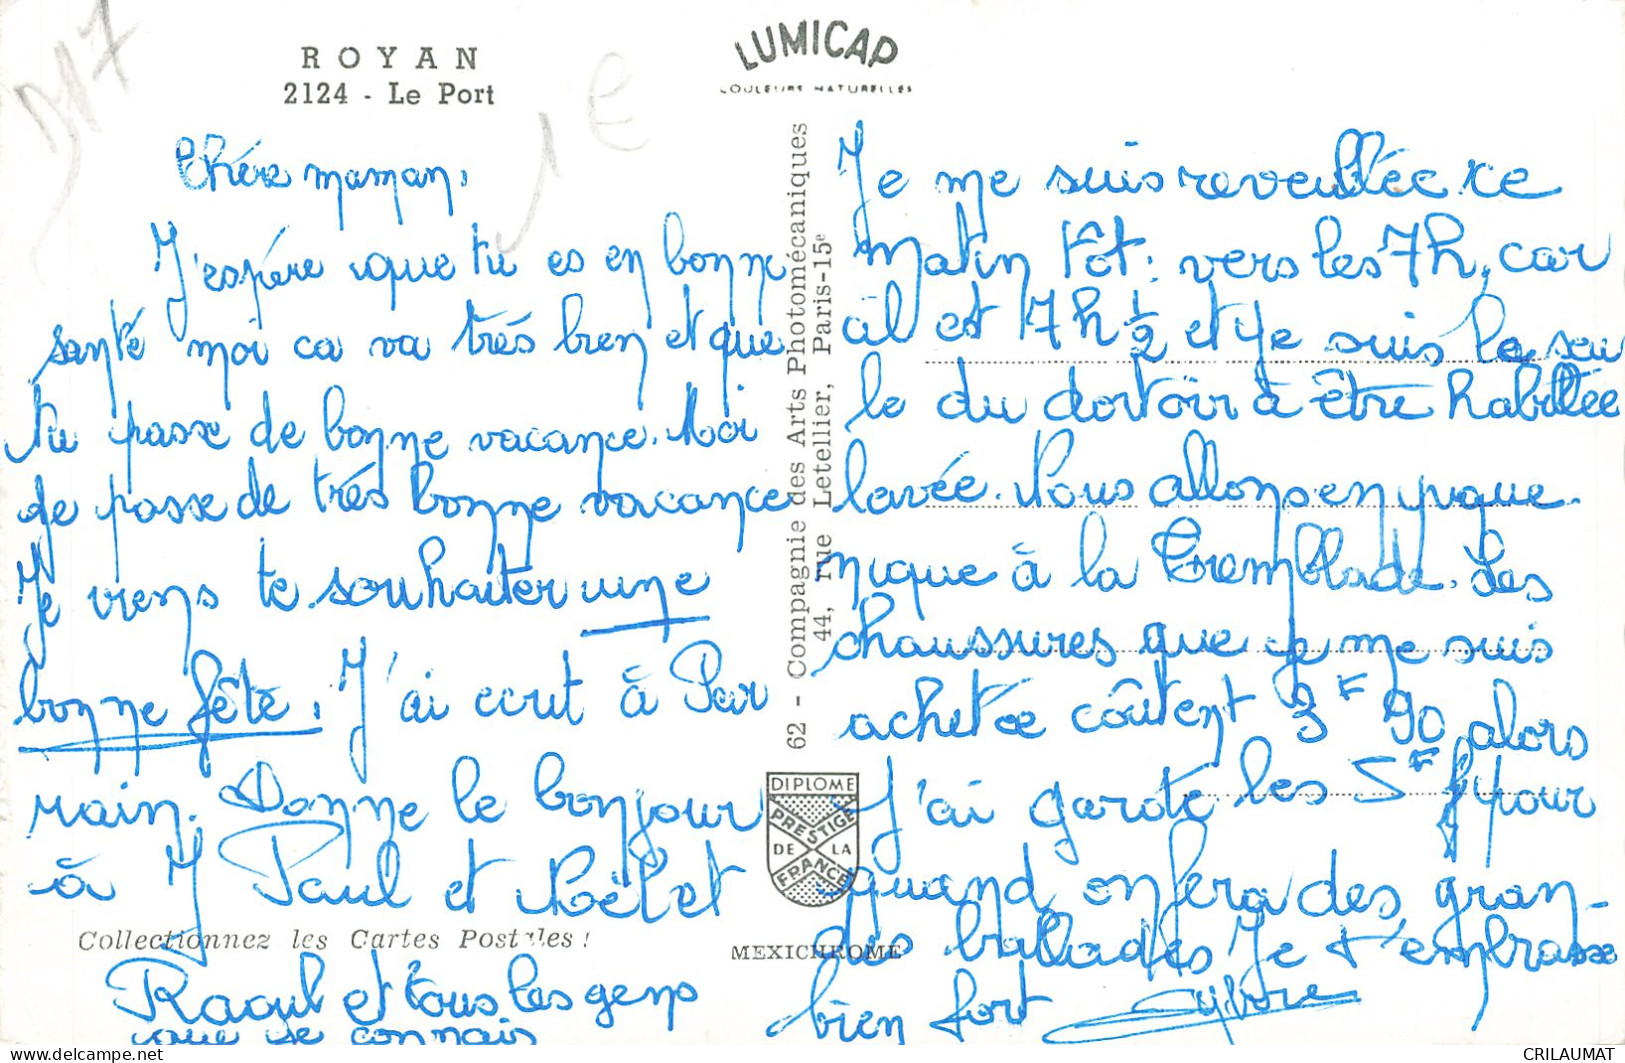 D17
1€
ROYAN
2124 - Le Port
LUMICAP
COULEURS NATURELLES
Chére maman,
J'espére que tu es en bonne
santé moi ca va très bien et que
tu passe de bonne vacance. Moi
je passe de trés bonne vacance
Je viens te souhaiter une
bonne fête. J'ai ecrit à Par
rain. Donne le bonjour
à J Paul et Noël et
Raoul et tous les gens
que je connais
62 - Compagnie des Arts Photomécaniques
44, rue Letellier, Paris-15e
DIPLOME
PRESTIGE
DE LA
FRANCE
Collectionnez les Cartes Postales !
MEXICHROME
Je me suis reveillée ce
matin tôt : vers les 7h, car
il est 7h ½ et je suis la seu
le du dortoir à être habillée
lavée. Nous allons en pique.
nique à la Tremblade. Les
chaussures que je me suis
achetée coûtent 3F 90 alors
J'ai garde les 5F pour
quand on fera des gran-
des ballades Je t'embrasse
bien fort Sylvore
CRILAUMAT